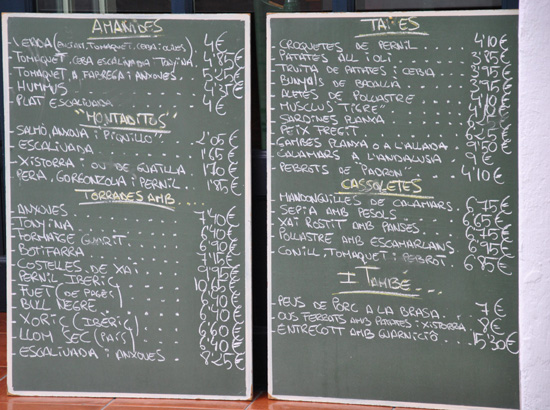 AMANIDES
-VERDA (ENCIAM, TOMAQUET, CEBA i OLIVES) 4€
-TOMAQUET, CEBA ESCALIVADA TONYINA. 4'85€
-TOMAQUET, A FARREGA i ANXOVES 5'25€
-HUMMUS 4'35€
-PLAT ESCALIVADA 4€
"MONTADITOS"
-SALMÓ, ANXOVA i PIQUILLO 2'05€
-ESCALIVADA 1'65€
-XISTORRA i OU DE GUATLLA 1'70€
-PERA, GORGONZOLA i PERNIL 1'85€
TORRADES AMB...
-ANXOVES 7'40€
-TONYINA 6'40€
-FORMATGE CURRIT 6'90€
-BOTIFARRA 7'15€
-COSTELLES DE XAI 9'95€
-PERNIL IBERIC 10'65€
-FUET (DE PAGES) 6'40€
-BULL NEGRE 6'40€
-XORIÇ (IBERIC) 6'60€
-LLOM SEC (PAIS) 6'40€
-ESCALIVADA i ANXOVES 8'25€
TAPES
-CROQUETES DE PERNIL 4'10€
-PATATES ALL i OLI 3'85€
-TRUITA DE PATATES i CEBA 3'95€
-BUNYOLS DE BACALLÀ 3'95€
-ALETES DE POLLASTRE
-MUSCLUS TIGRE
-SARDINES PLANXA
-PEIX FREGIT 6'25€
-GAMBES PLANXA O A L'ALLADA 9'50€
-CALAMARS A L'ANDALUSIA 9€
-PEBROTS DE PADRON 4'10€
CASSOLETES
-MANDONGUILLES DE CALAMARS 6'75€
-SEPIA AMB PESOLS 6'65€
-XAI ROSTIT AMB PANSES 6'75€
-POLLASTRE AMB ESCAMARLANS 6'95€
-CONILL, TOMAQUET i PEBROT 6'85€
I TAMBE...
-PEUS DE PORC A LA BRASA 7€
-OUS FERRATS AMB PATATES i XISTORRA 8€
-ENTRECOTT AMB GUARNICIÓ 15'30€